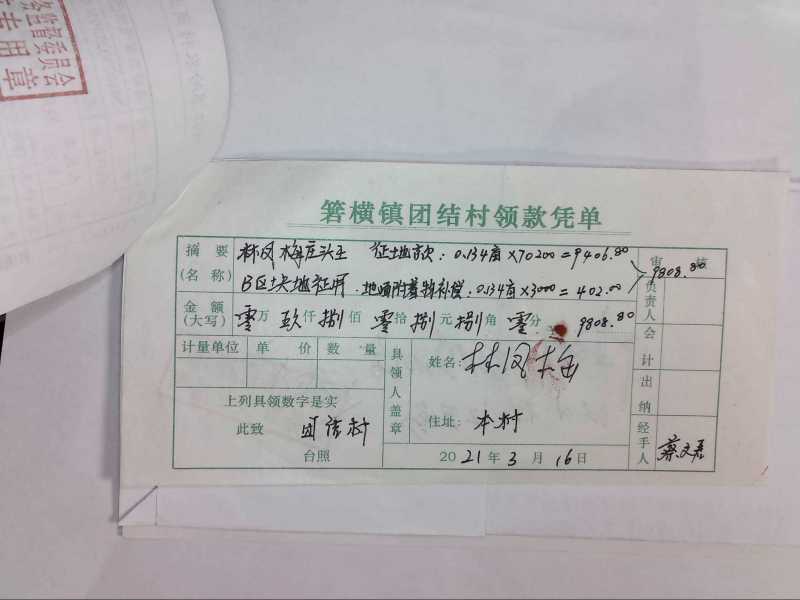 监督委员会
专用章
箬横镇团结村领款凭单
摘要
(名称)
林凤梅庄头王 征土地款：0.134亩×70200=9406.80
B区块地征用.地面附着物补偿：0.134亩×3000=402.00
9808.80
审核
金额
(大写)
零万玖仟捌佰零拾捌元捌角零分 9808.80
计量单位 单价 数量
上列具领数字是实
此致 团结村
台照
具领人盖章
姓名： 林凤梅
住址： 本村
2021年3月16日
负责人
会计
出纳
经手人
蔡文